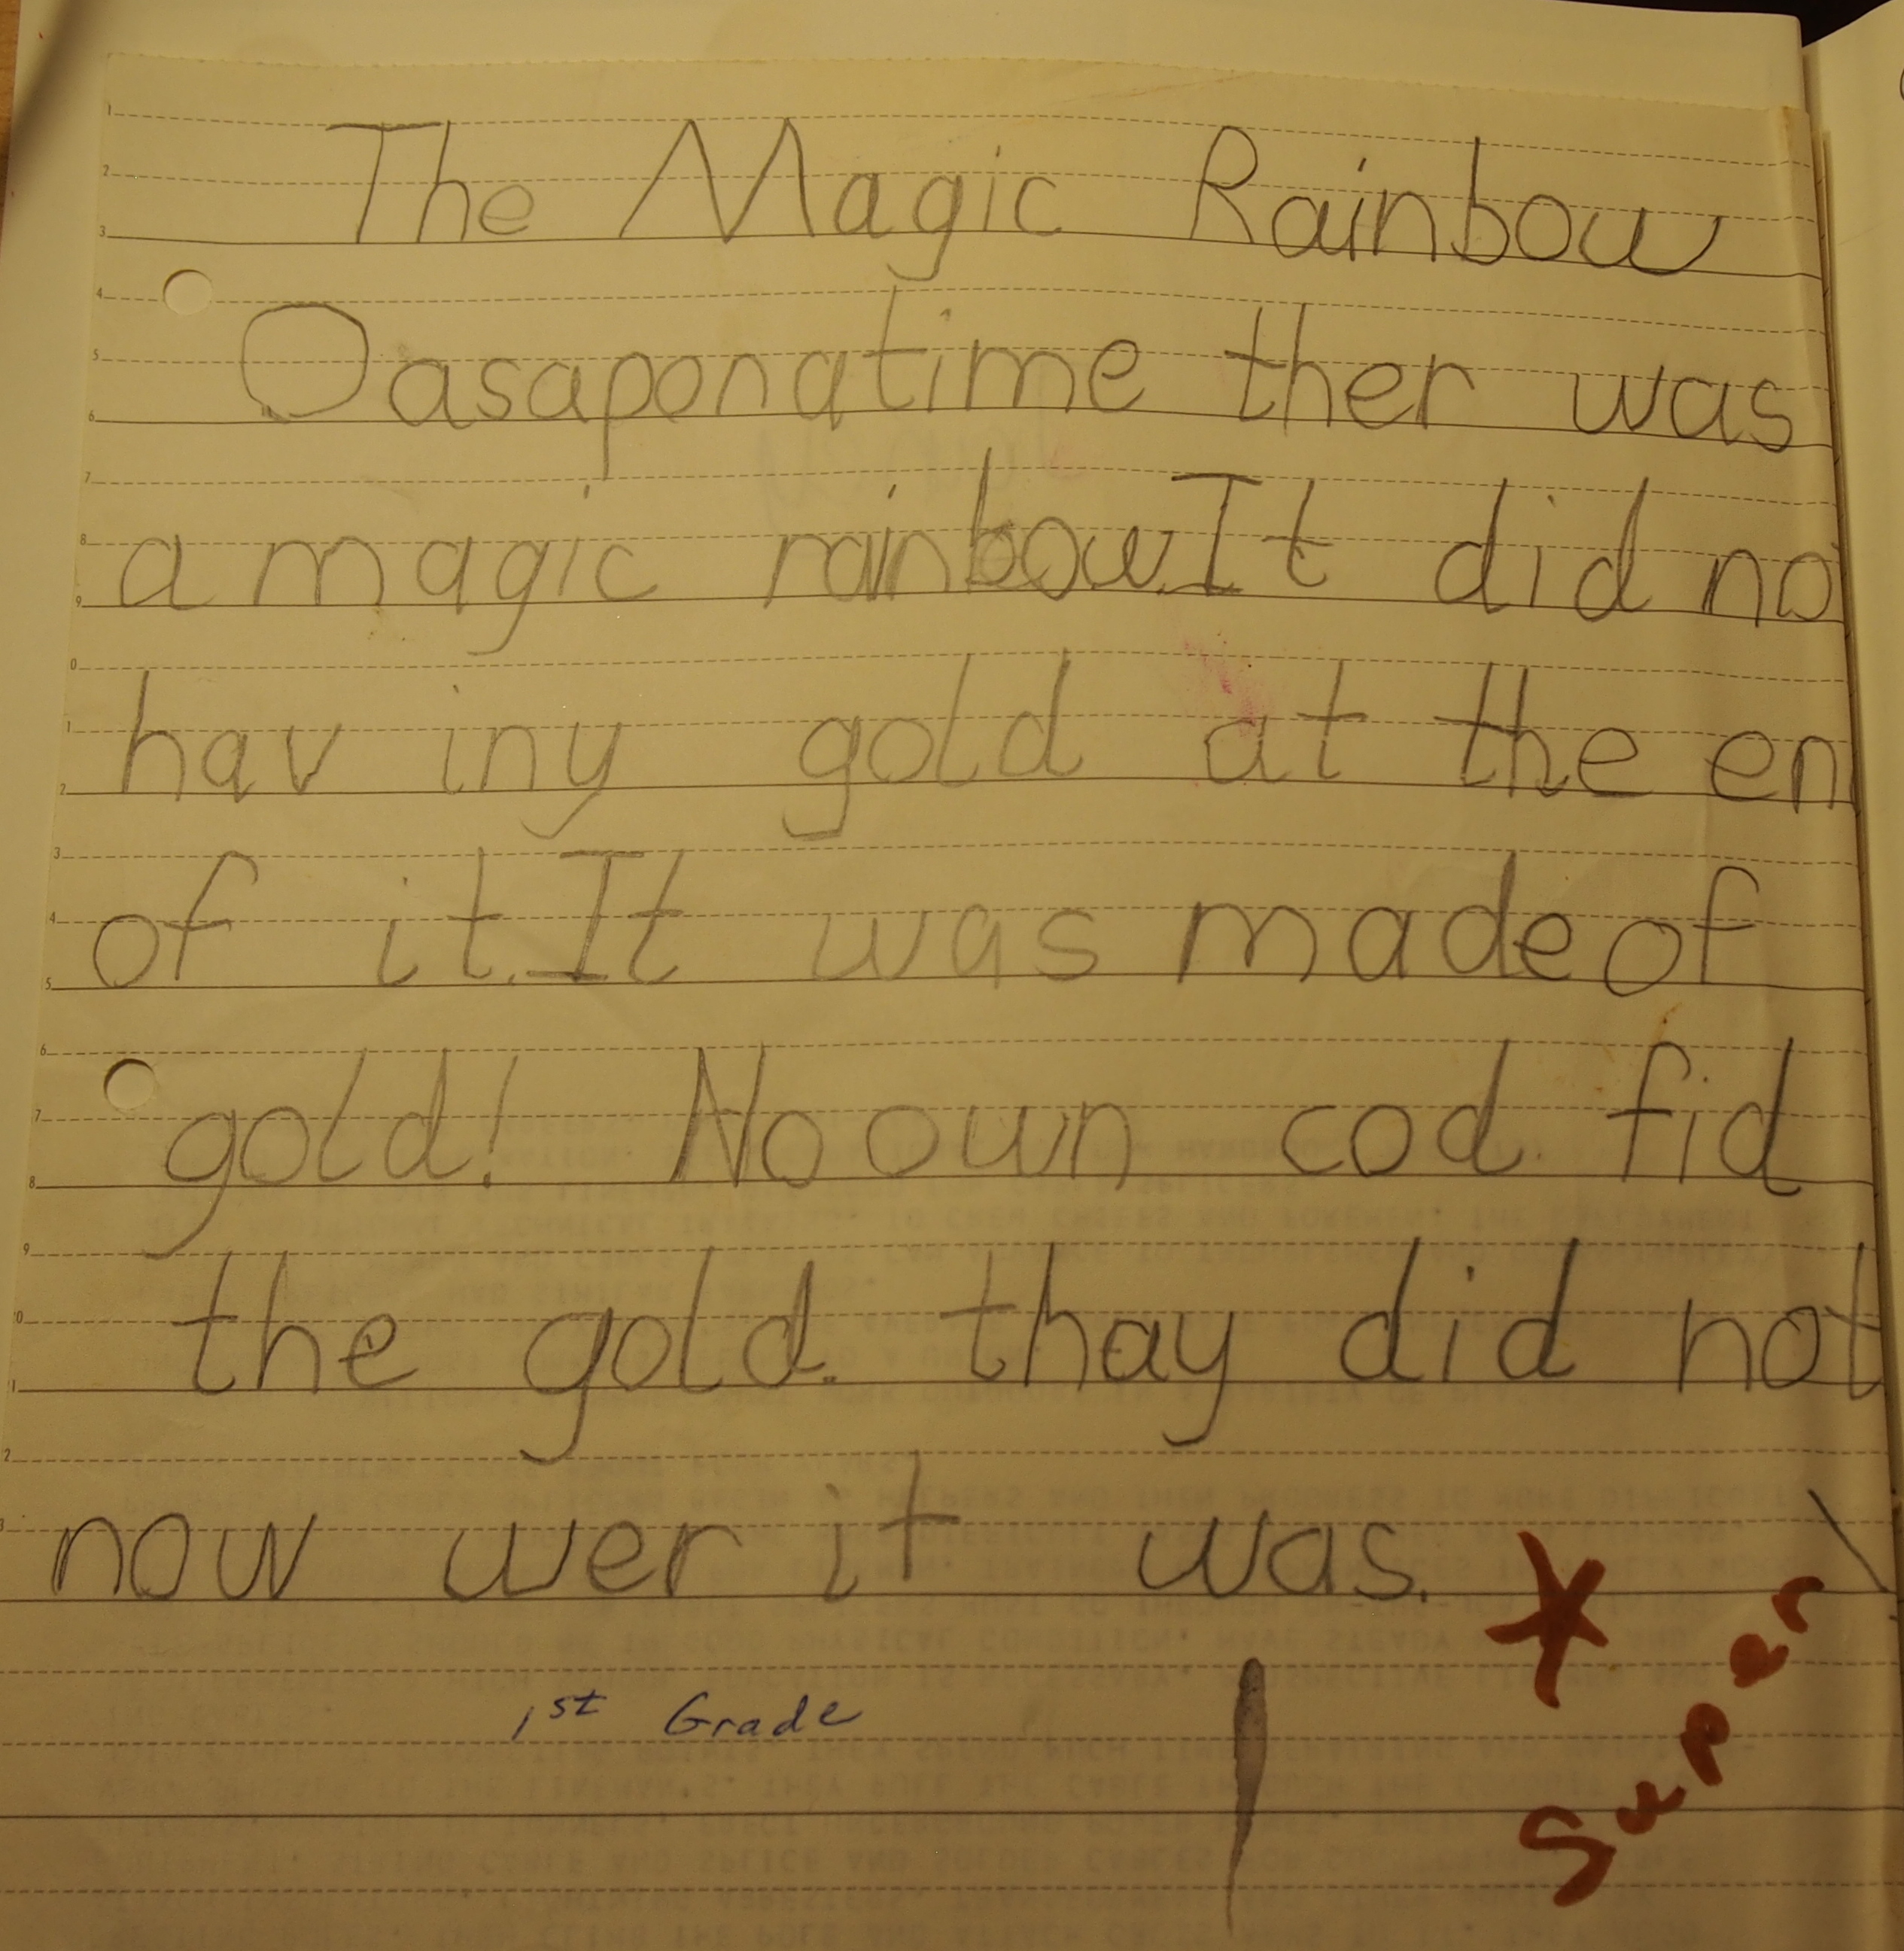 The Magic Rainbow
Oasaponatime ther was
a magic rainbow. It did no
hav iny gold at the en
of it. It was made of
gold! No own cod fid
the gold. thay did not
now wer it was.
1st Grade
* Super